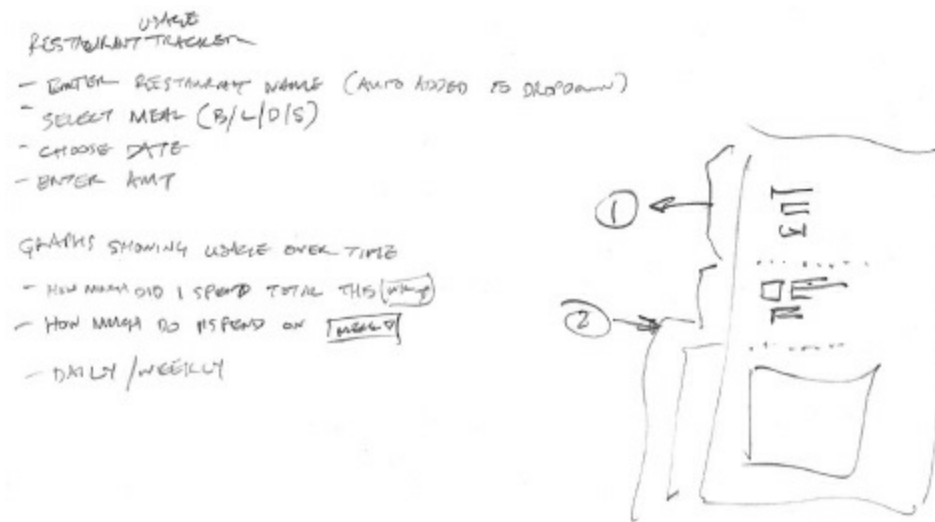 USAGE
RESTAURANT TRACKER
- ENTER RESTAURANT NAME (AUTO ADDED TO DROPDOWN)
- SELECT MEAL (B/L/D/S)
- CHOOSE DATE
- ENTER AMT
GRAPHS SHOWING USAGE OVER TIME
- HOW MUCH DID I SPEND TOTAL THIS
- HOW MUCH DO I SPEND ON MEAL
- DAILY/WEEKLY
1
2